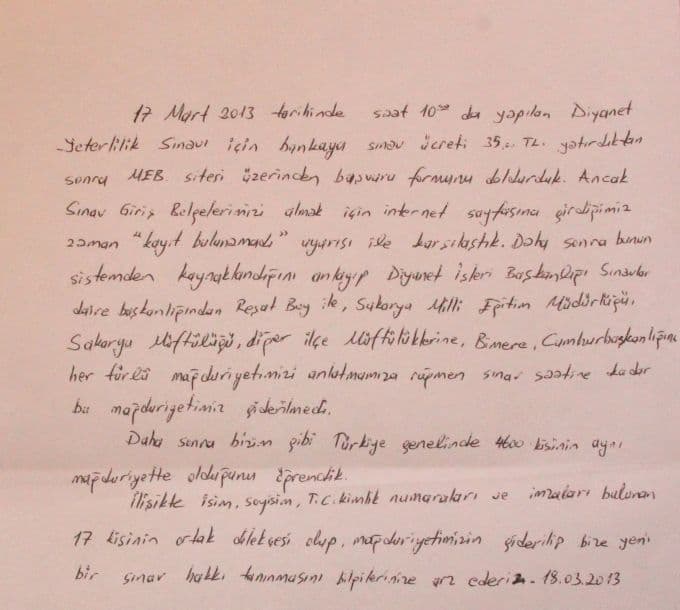 17 Mart 2013 tarihinde saat 10⁰⁰ da yapılan Diyanet
Yeterlilik Sınavı için bankaya sınav ücreti 35.- TL. yatırdıktan
sonra MEB. siteri üzerinden başvuru formunu doldurduk. Ancak
Sınav Giriş Belgelerimizi almak için internet sayfasına girdiğimiz
zaman "kayıt bulunamadı" uyarısı ile karşılaştık. Daha sonra bunun
sistemden kaynaklandığını anlayıp Diyanet İşleri Başkanlığı Sınavlar
daire başkanlığından Reşat Bey ile, Sakarya Milli Eğitim Müdürlüğü,
Sakarya Müftülüğü, diğer ilçe Müftülüklerine, Bimere, Cumhurbaşkanlığına
her türlü mağduriyetimizi anlatmamıza rağmen sınav saatine kadar
bu mağduriyetimiz giderilmedi.
Daha sonra bizim gibi Türkiye genelinde 4600 kişinin aynı
mağduriyette olduğunu öğrendik.
İlişikte isim, soyisim, T.C. kimlik numaraları ve imzaları bulunan
17 kişinin ortak dilekçesi olup, mağduriyetimizin giderilip bize yeni
bir sınav hakkı tanınmasını bilgilerinize arz ederiz. 18.03.2013